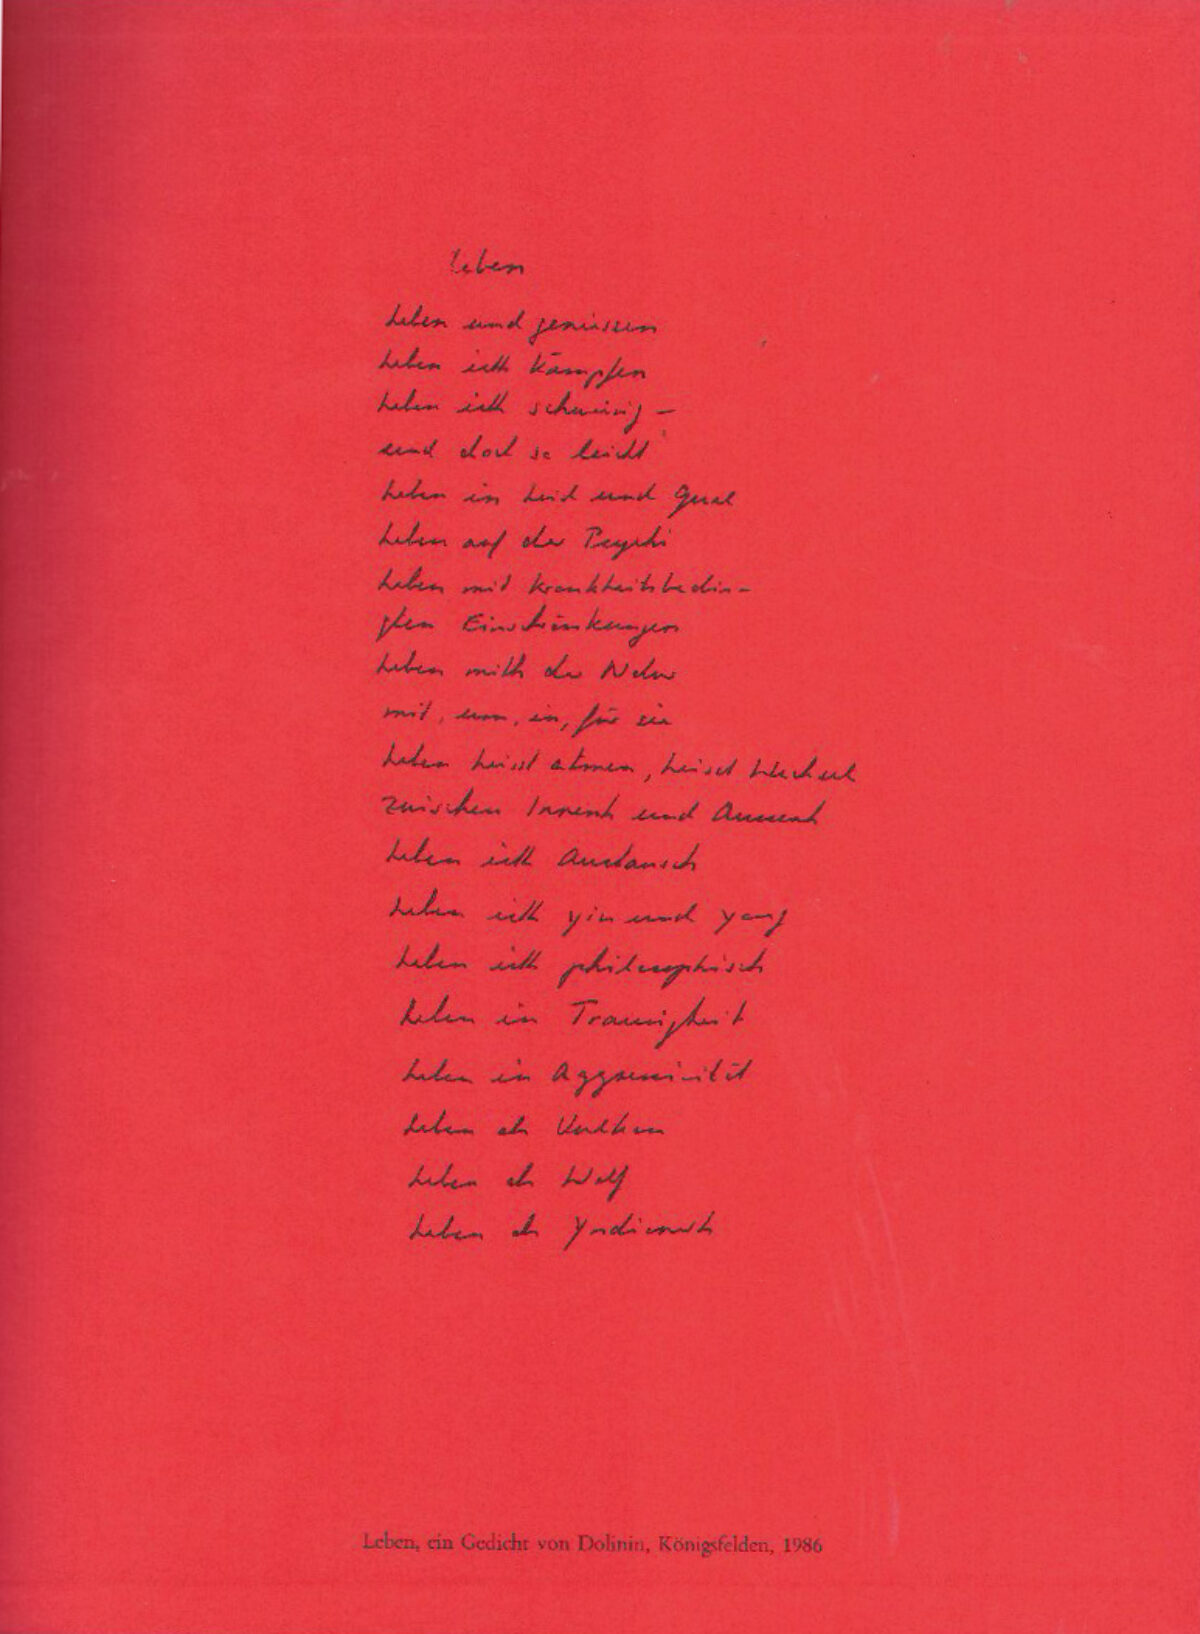 Leben
Leben und geniessen
Leben ist Kämpfen
Leben ist schwierig –
und doch so leicht
Leben in Leid und Qual
Leben auf der Psychi
Leben mit krankheitsbedin-
gten Einschränkungen
Leben mit der Natur
mit, um, in, für sie
Leben heisst atmen, heisst Wechsel
zwischen Innen und Aussen
Leben ist Austausch
Leben ist yin und yang
Leben ist philosophisch
Leben in Traurigkeit
Leben in Aggressivität
Leben als
Leben als Wolf
Leben als
Leben, ein Gedicht von Dolinin, Königsfelden, 1986